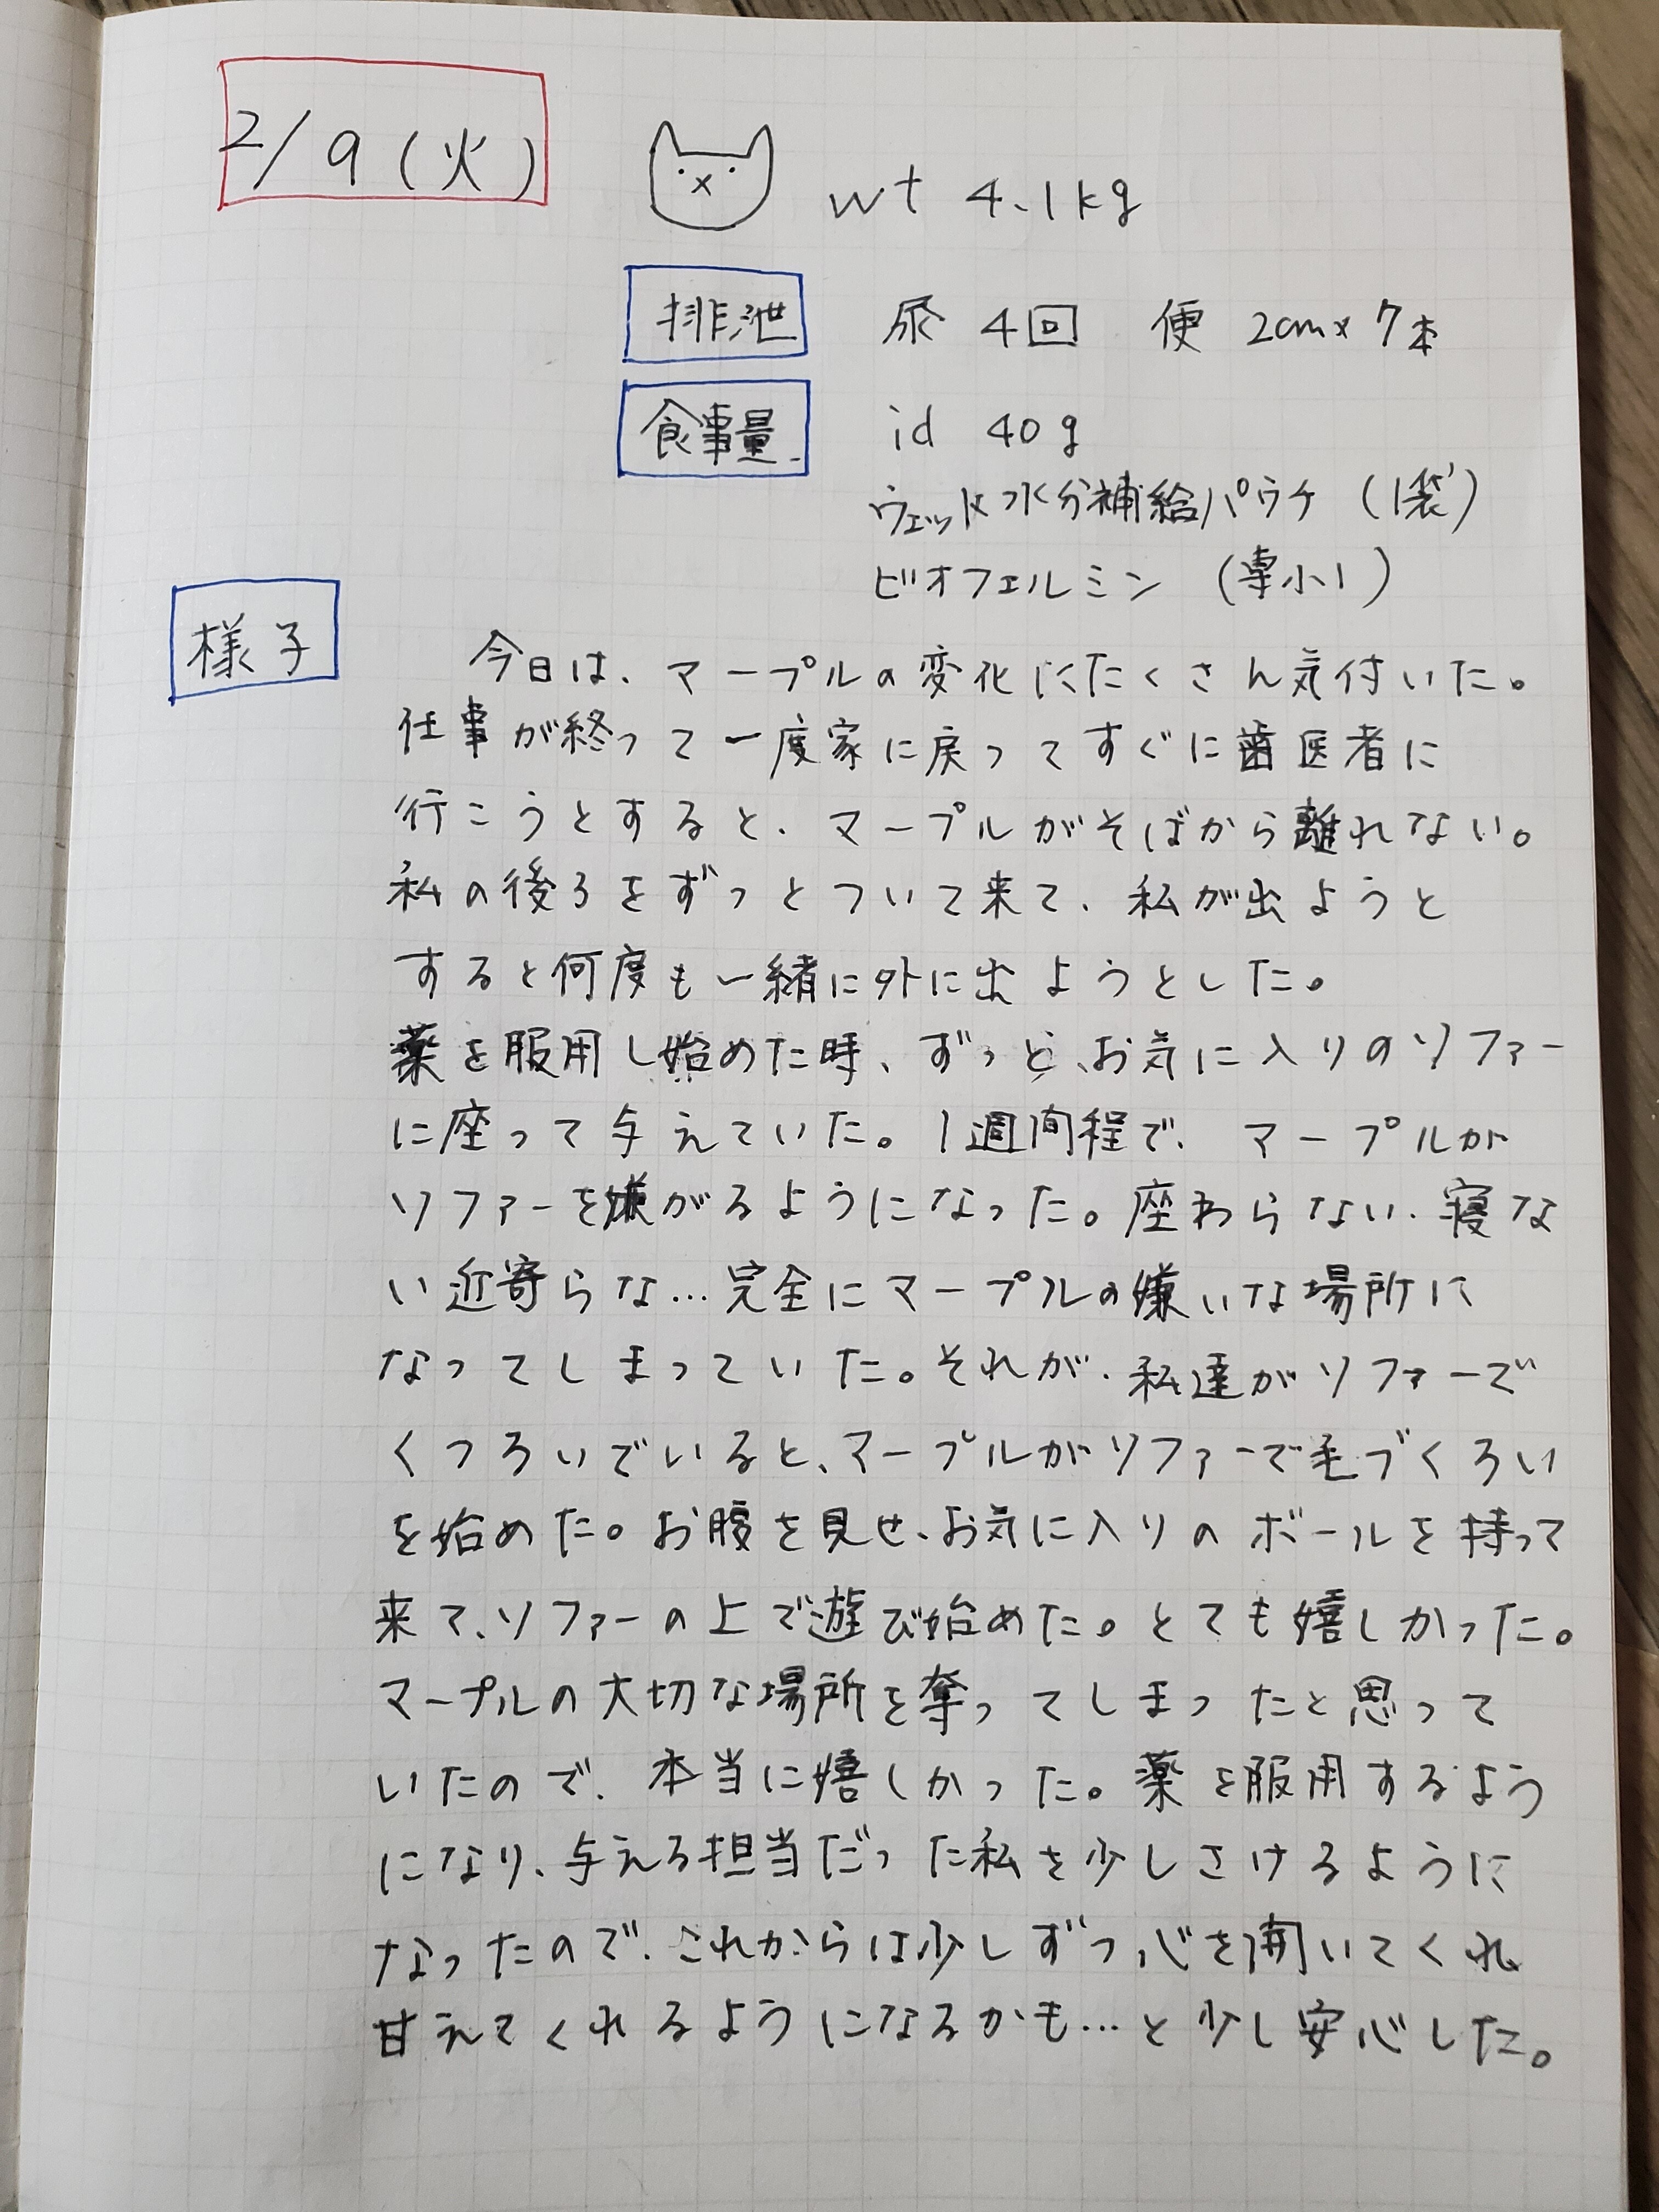 2/9(火)
wt 4.1kg
排泄 尿 4回 便 2cm×7本
食事量 id 40g
ウェット水分補給パウチ(1袋)
ビオフェルミン (専小1)
様子 今日は、マープルの変化にたくさん気付いた。
仕事が終って一度家に戻ってすぐに歯医者に
行こうとすると、マープルがそばから離れない。
私の後ろをずっとついて来て、私が出ようと
すると何度も一緒に外に出ようとした。
薬を服用し始めた時、ずっと、お気に入りのソファー
に座って与えていた。1週間程で、マープルが
ソファーを嫌がるようになった。座わらない、寝な
い近寄らな…完全にマープルの嫌いな場所に
なってしまっていた。それが、私達がソファーで
くつろいでいると、マープルがソファーで毛づくろい
を始めた。お腹を見せ、お気に入りのボールを持って
来て、ソファーの上で遊び始めた。とても嬉しかった。
マープルの大切な場所を奪ってしまったと思って
いたので、本当に嬉しかった。薬を服用するよう
になり、与える担当だった私を少しさけるように
なったので、これからは少しずつ心を開いてくれ
甘えてくれるようになるかも…と少し安心した。